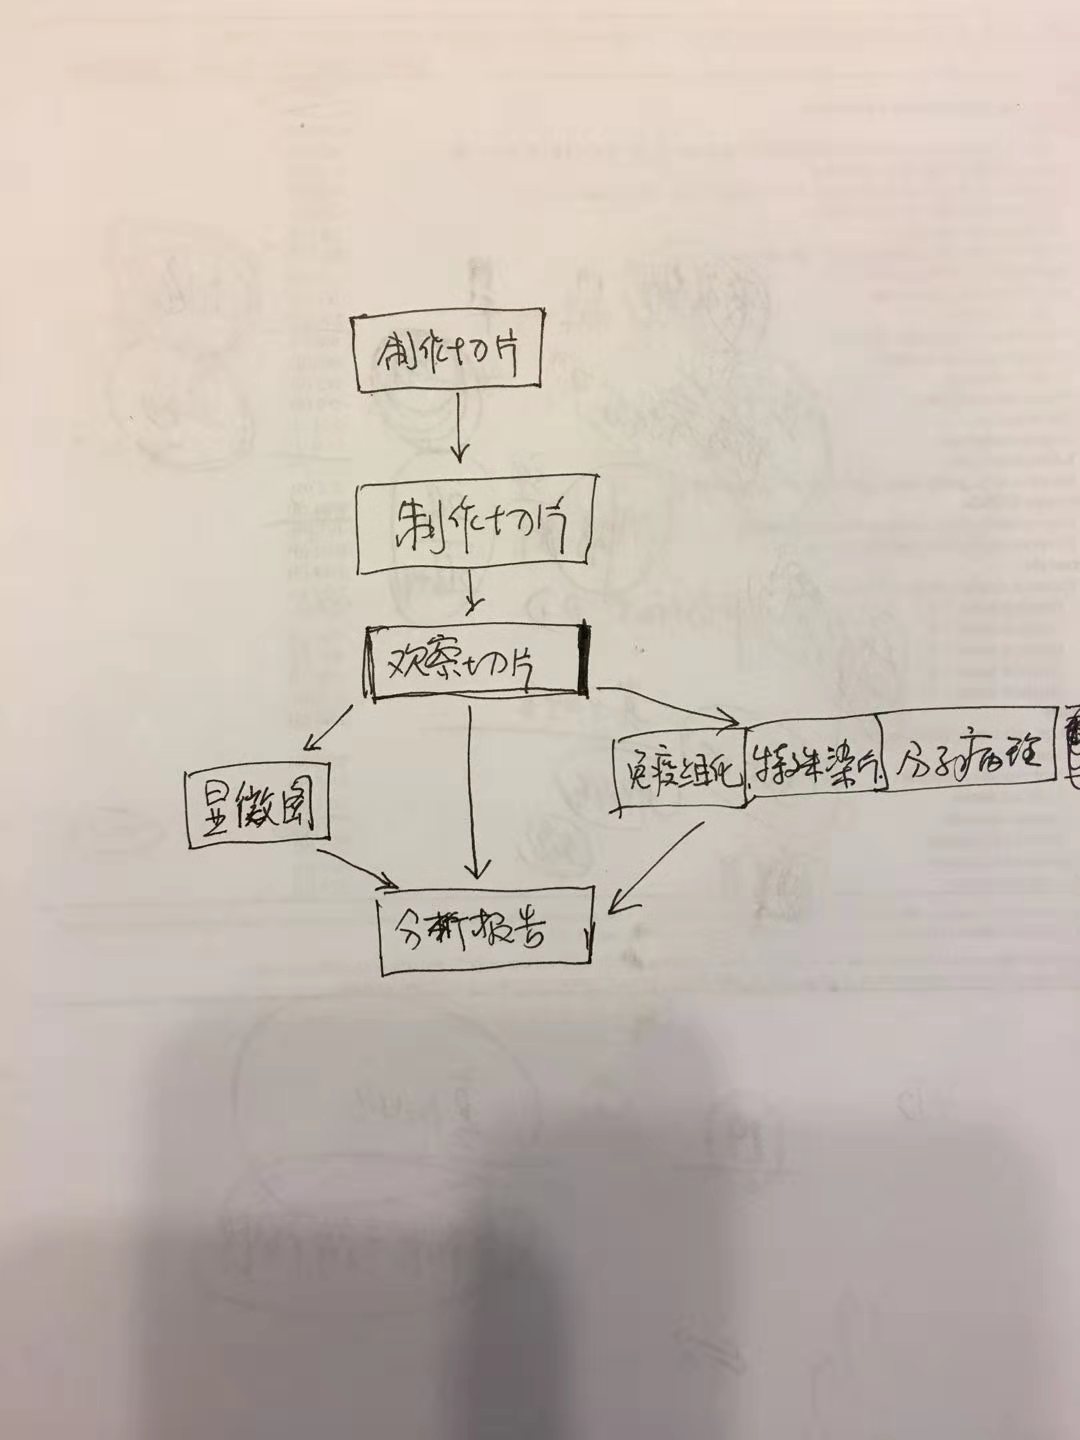 制作切片
制作切片
观察切片
显微图
免疫组化 特殊染片 分子病理
分析报告